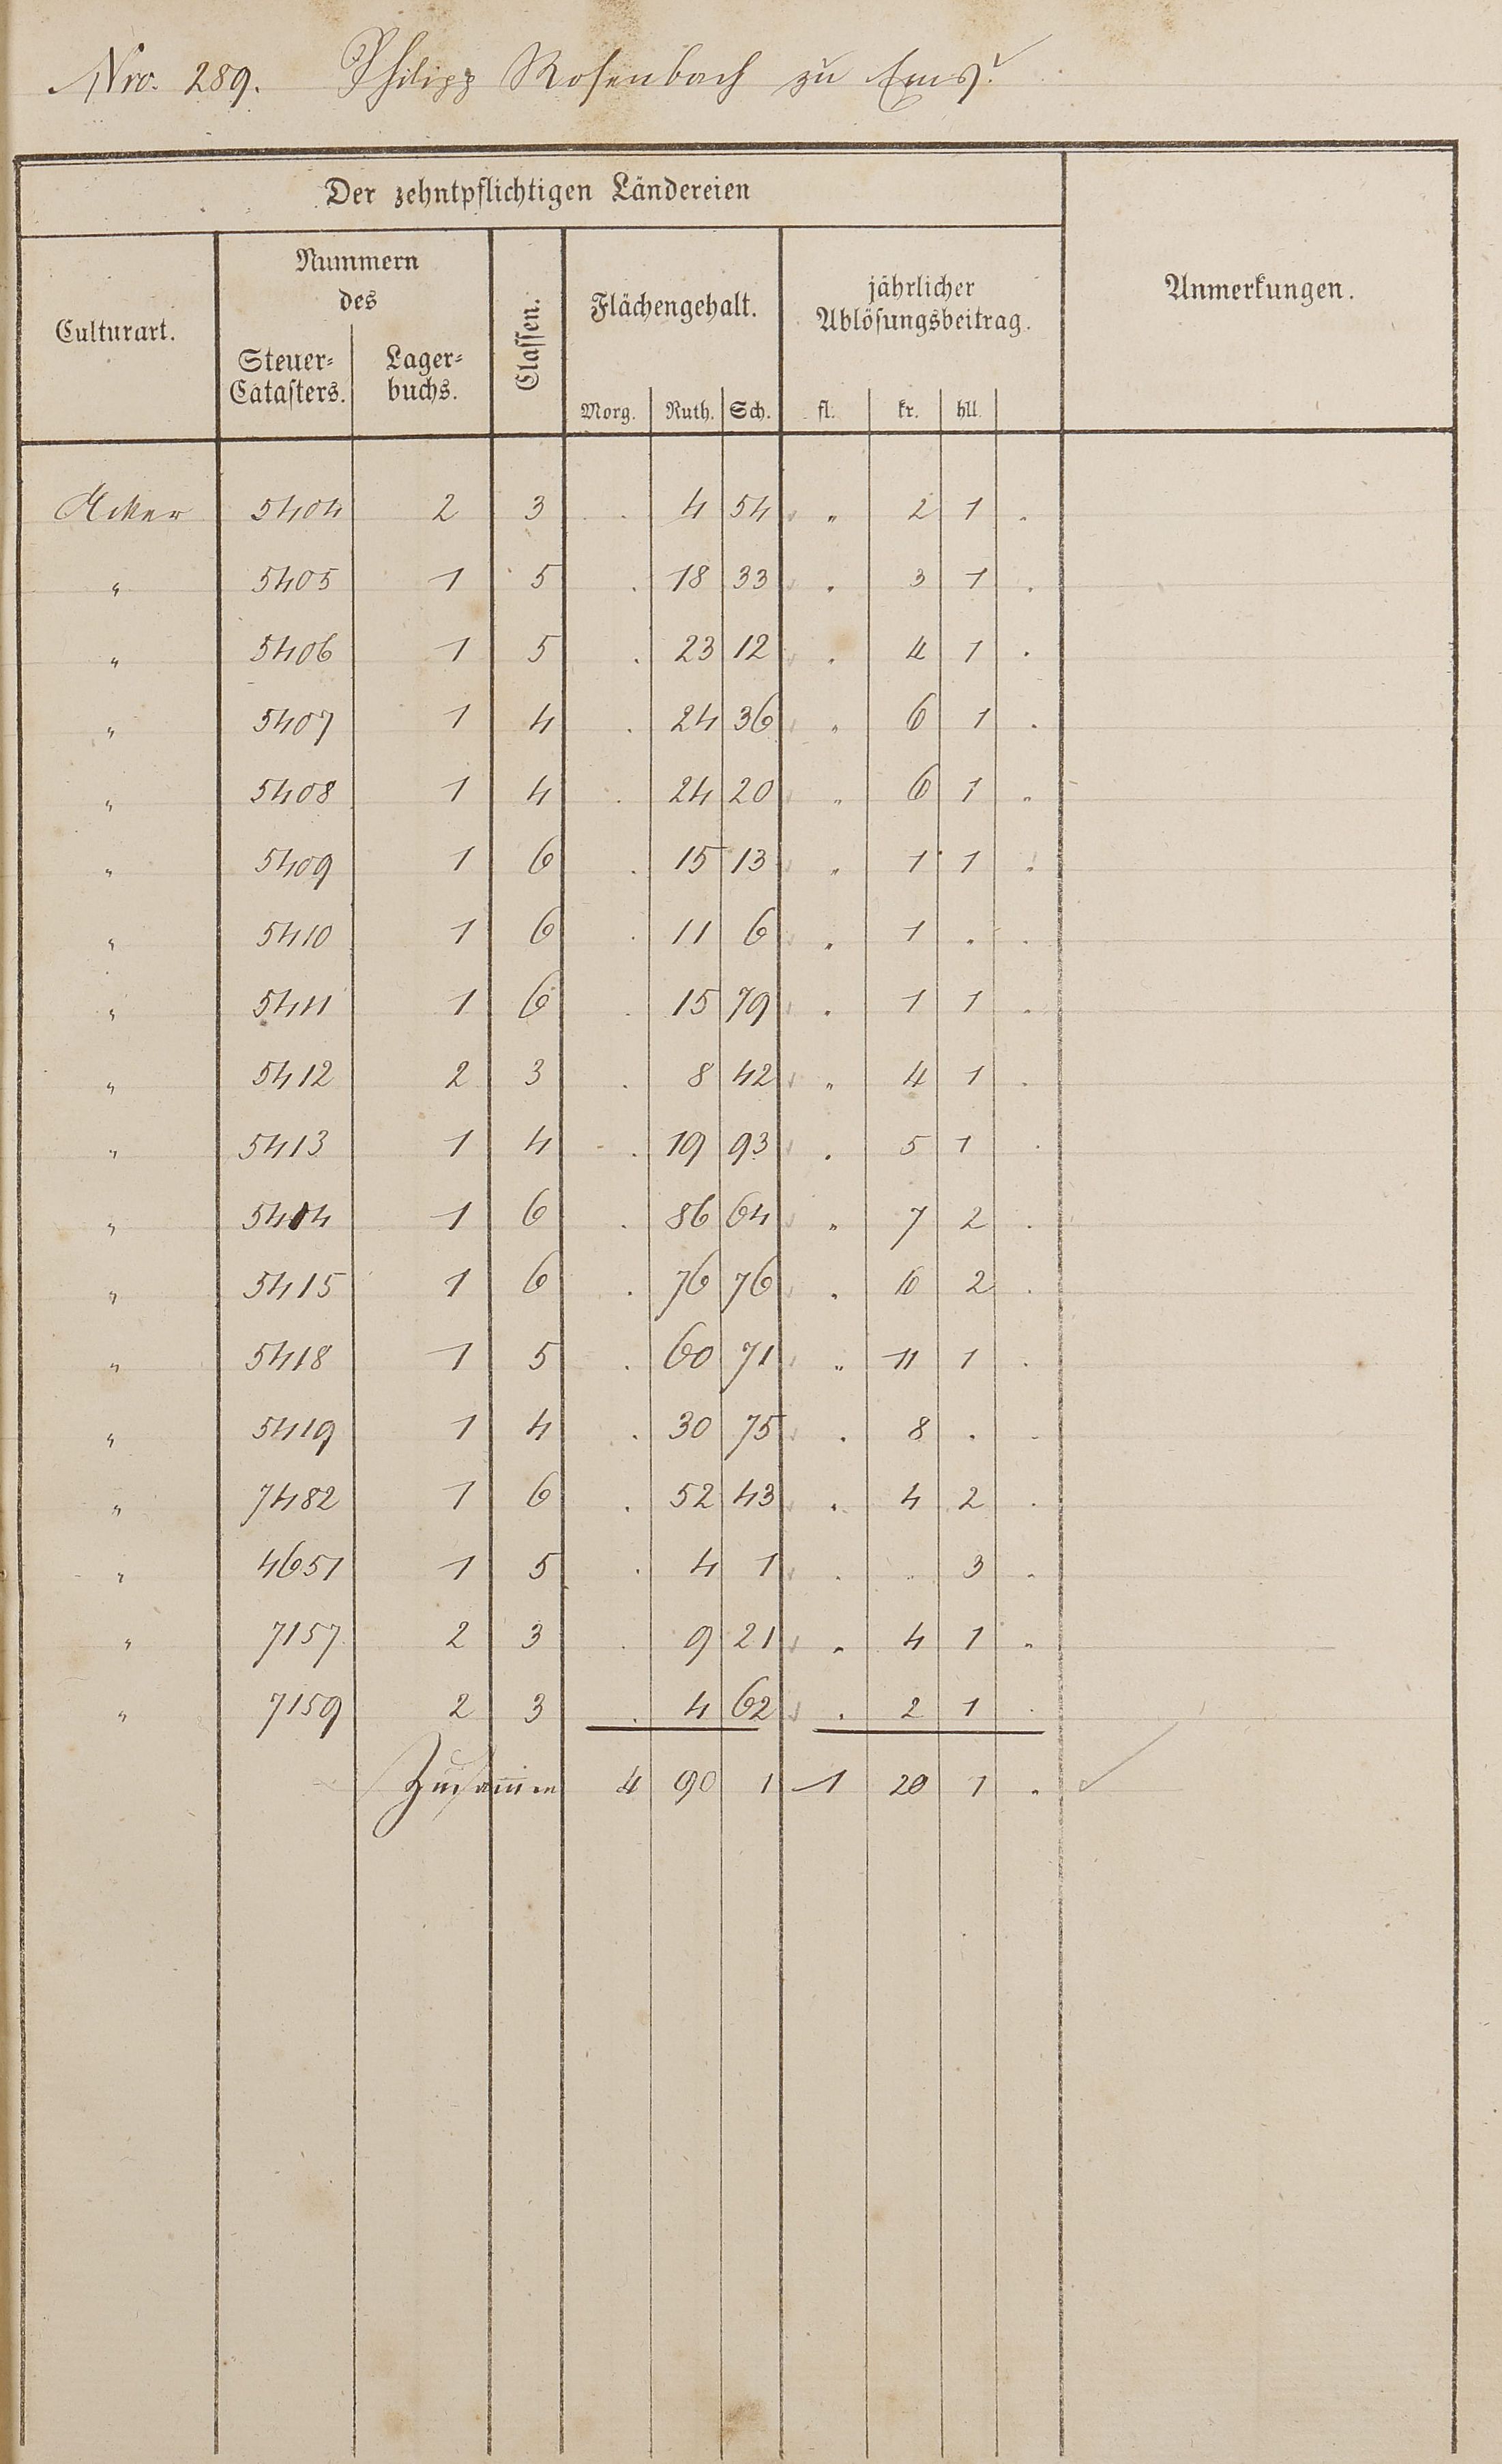 Nro. 289. Philipp Rosenbach zu Ems.
Der zehntpflichtigen Ländereien
Culturart.
Nummern
des
Steuer-
Catasters.
Lager-
buchs.
Classen.
Flächengehalt.
Morg. Ruth. Sch.
jährlicher
Ablösungsbeitrag.
fl. kr. hll.
Anmerkungen.
Acker 5404 2 3 . 4 54 " 2 1 .
" 5405 1 5 . 18 33 . 3 1 .
" 5406 1 5 . 23 12 . 4 1 .
" 5407 1 4 . 24 36 " 6 1 .
" 5408 1 4 . 24 20 " 6 1 "
" 5409 1 6 . 15 13 " 1 1 .
" 5410 1 6 . 11 6 . 1 . .
" 5411 1 6 . 15 79 . 1 1 .
" 5412 2 3 . 8 42 " 4 1 .
" 5413 1 4 . 19 93 . 5 1 .
" 5414 1 6 . 86 64 " 7 2 .
" 5415 1 6 . 76 76 . 6 2 .
" 5418 1 5 . 60 71 " 11 1 .
" 5419 1 4 . 30 75 . 8 . .
" 7482 1 6 . 52 43 . 4 2 .
" 4651 1 5 . 4 1 . . 3 .
" 7157 2 3 . 9 21 " 4 1 "
" 7159 2 3 . 4 62 . 2 1 .
Zusammen 4 90 1 1 20 1 .